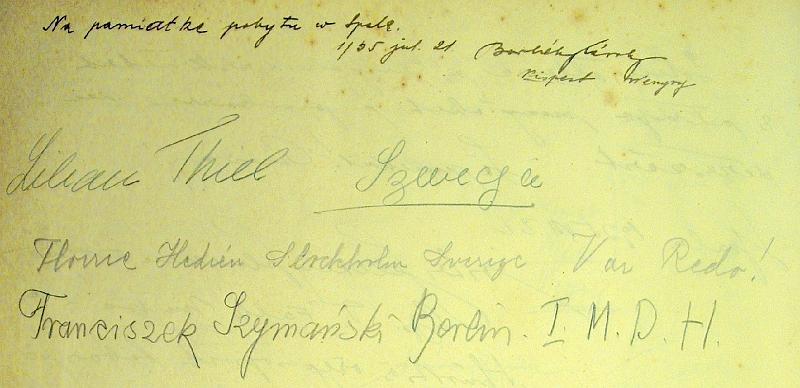 Na pamiatke pobytu w Spale.
1935 jul. 21 Károly
Kispest Wengry
Lilian Thiel Szwecja
Hedrén Stockholm Sverige Var Redo!
Franciszek Szymański Berlin. I. M. D. H.